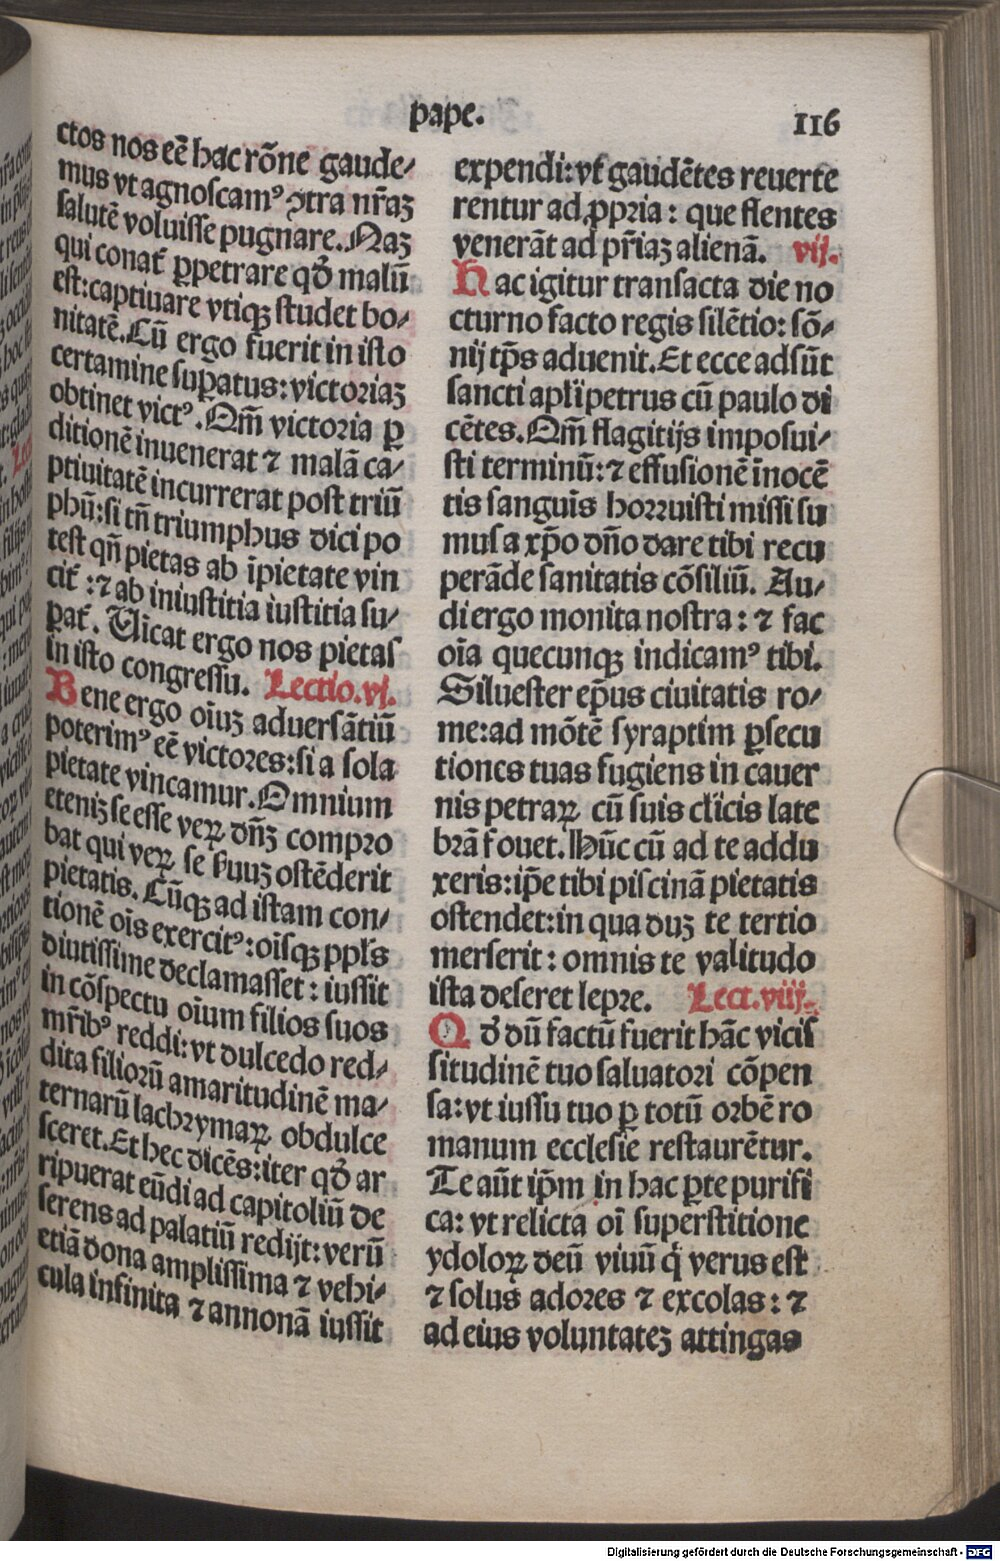 pape.
116
ctos nos eē hac rōne gaude⸗
mus vt agnoscamꝰ ↄtra nr̄aꝫ
salutē voluisse pugnare. Naꝫ
qui conat̄ ꝑpetrare qđ malū
est: captiuare vtiqꝫ studet bo⸗
nitatē. Cū ergo fuerit in isto
certamine suꝑatus: victoriaꝫ
obtinet victꝰ. Qm̄ victoria ꝑ
ditionē inuenerat ⁊ malā ca⸗
ptiuitatē incurrerat post triū
phū: si tn̄ triumphus dici po
test qn̄ pietas ab īpietate vin
cit̄ : ⁊ ab iniustitia iustitia su⸗
ꝑat̄. Uicat ergo nos pietas
in isto congressu. Lectio.vj.
Bene ergo oīuꝫ aduersātiū
poterimꝰ eē victores: si a sola
pietate vincamur. Omnium
eteniꝫ se esse veꝝ dn̄ꝫ compro
bat qui veꝝ se ẜuuꝫ ostēderit
pietatis. Cūqꝫ ad istam con⸗
tionē oīs exercitꝰ: oīsqꝫ ppl̄s
diutissime declamasset : iussit
in cōspectu oīum filios suos
mr̄ibꝰ reddi: vt dulcedo red⸗
dita filiorū amaritudinē ma⸗
ternarū lachrymaꝝ obdulce
sceret. Et hec dicēs: iter qđ ar
ripuerat eūdi ad capitoliū de
serens ad palatiū redijt: verū
etiā dona amplissima ⁊ vehi⸗
cula infinita ⁊ annonā iussit
expendi: vt̄ gaudētes reuerte
rentur ad ꝓpria : que flentes
venerāt ad pr̄iaꝫ alienā. vij.
Hac igitur transacta die no
cturno facto regis silētio: sō⸗
nij tp̄s aduenit. Et ecce adsūt
sancti apl̄i petrus cū paulo di
cētes. Qm̄ flagitijs imposui⸗
sti terminū: ⁊ effusionē īnocē
tis sanguīs horruisti missi su
mus a xp̄o dn̄o dare tibi recu
perāde sanitatis cōsiliū. Au⸗
di ergo monita nostra : ⁊ fac
oīa quecunqꝫ indicamꝰ tibi.
Siluester ep̄us ciuitatis ro⸗
me: ad mōtē syraptim ꝑsecu
tiones tuas fugiens in cauer
nis petraꝝ cū suis cl̄icis late
brā fouet. Hūc cū ad te addu
xeris: ip̄e tibi piscinā pietatis
ostendet: in qua duꝫ te tertio
merserit : omnis te valitudo
ista deseret lepre. Lect.viij.
Qđ dū factū fuerit hāc vicis
situdinē tuo saluatori cōpen
sa: vt iussu tuo ꝑ totū orbē ro
manum ecclesie restaurētur.
Te aūt ip̄m in hac ꝑte purifi
ca: vt relicta oī superstitione
ydoloꝝ deū viuū q̇ verus est
⁊ solus adores ⁊ excolas : ⁊
ad eius voluntateꝫ attingas
Digitalisierung gefördert durch die Deutsche Forschungsgemeinschaft - DFG